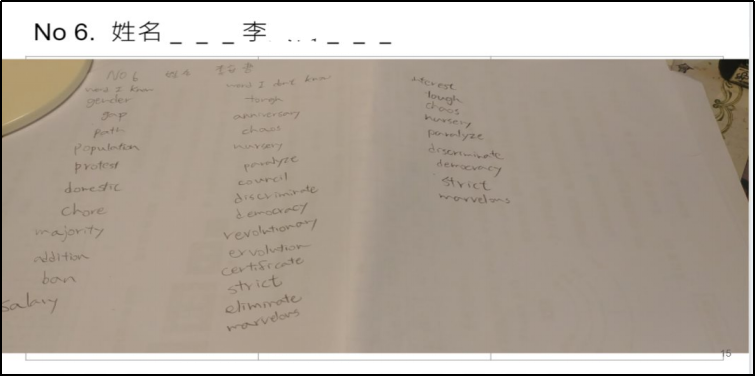 No 6. 姓名 _ _ _ 李 _ _ _
No 6 姓名
words I know
gender
gap
path
population
protest
domestic
chore
majority
addition
ban
salary
words I don't know
tough
anniversary
chaos
nursery
paralyze
council
discriminate
democracy
revolutionary
ervolution
certificate
strict
eliminate
marvelous
tough
chaos
nursery
paralyze
discriminate
democracy
strict
marvelous
15